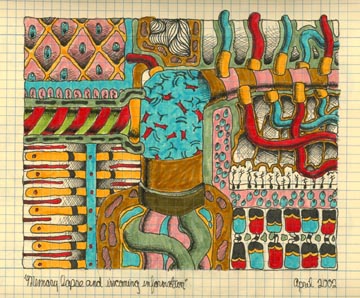 "Memory lapse and incoming information" April 2002